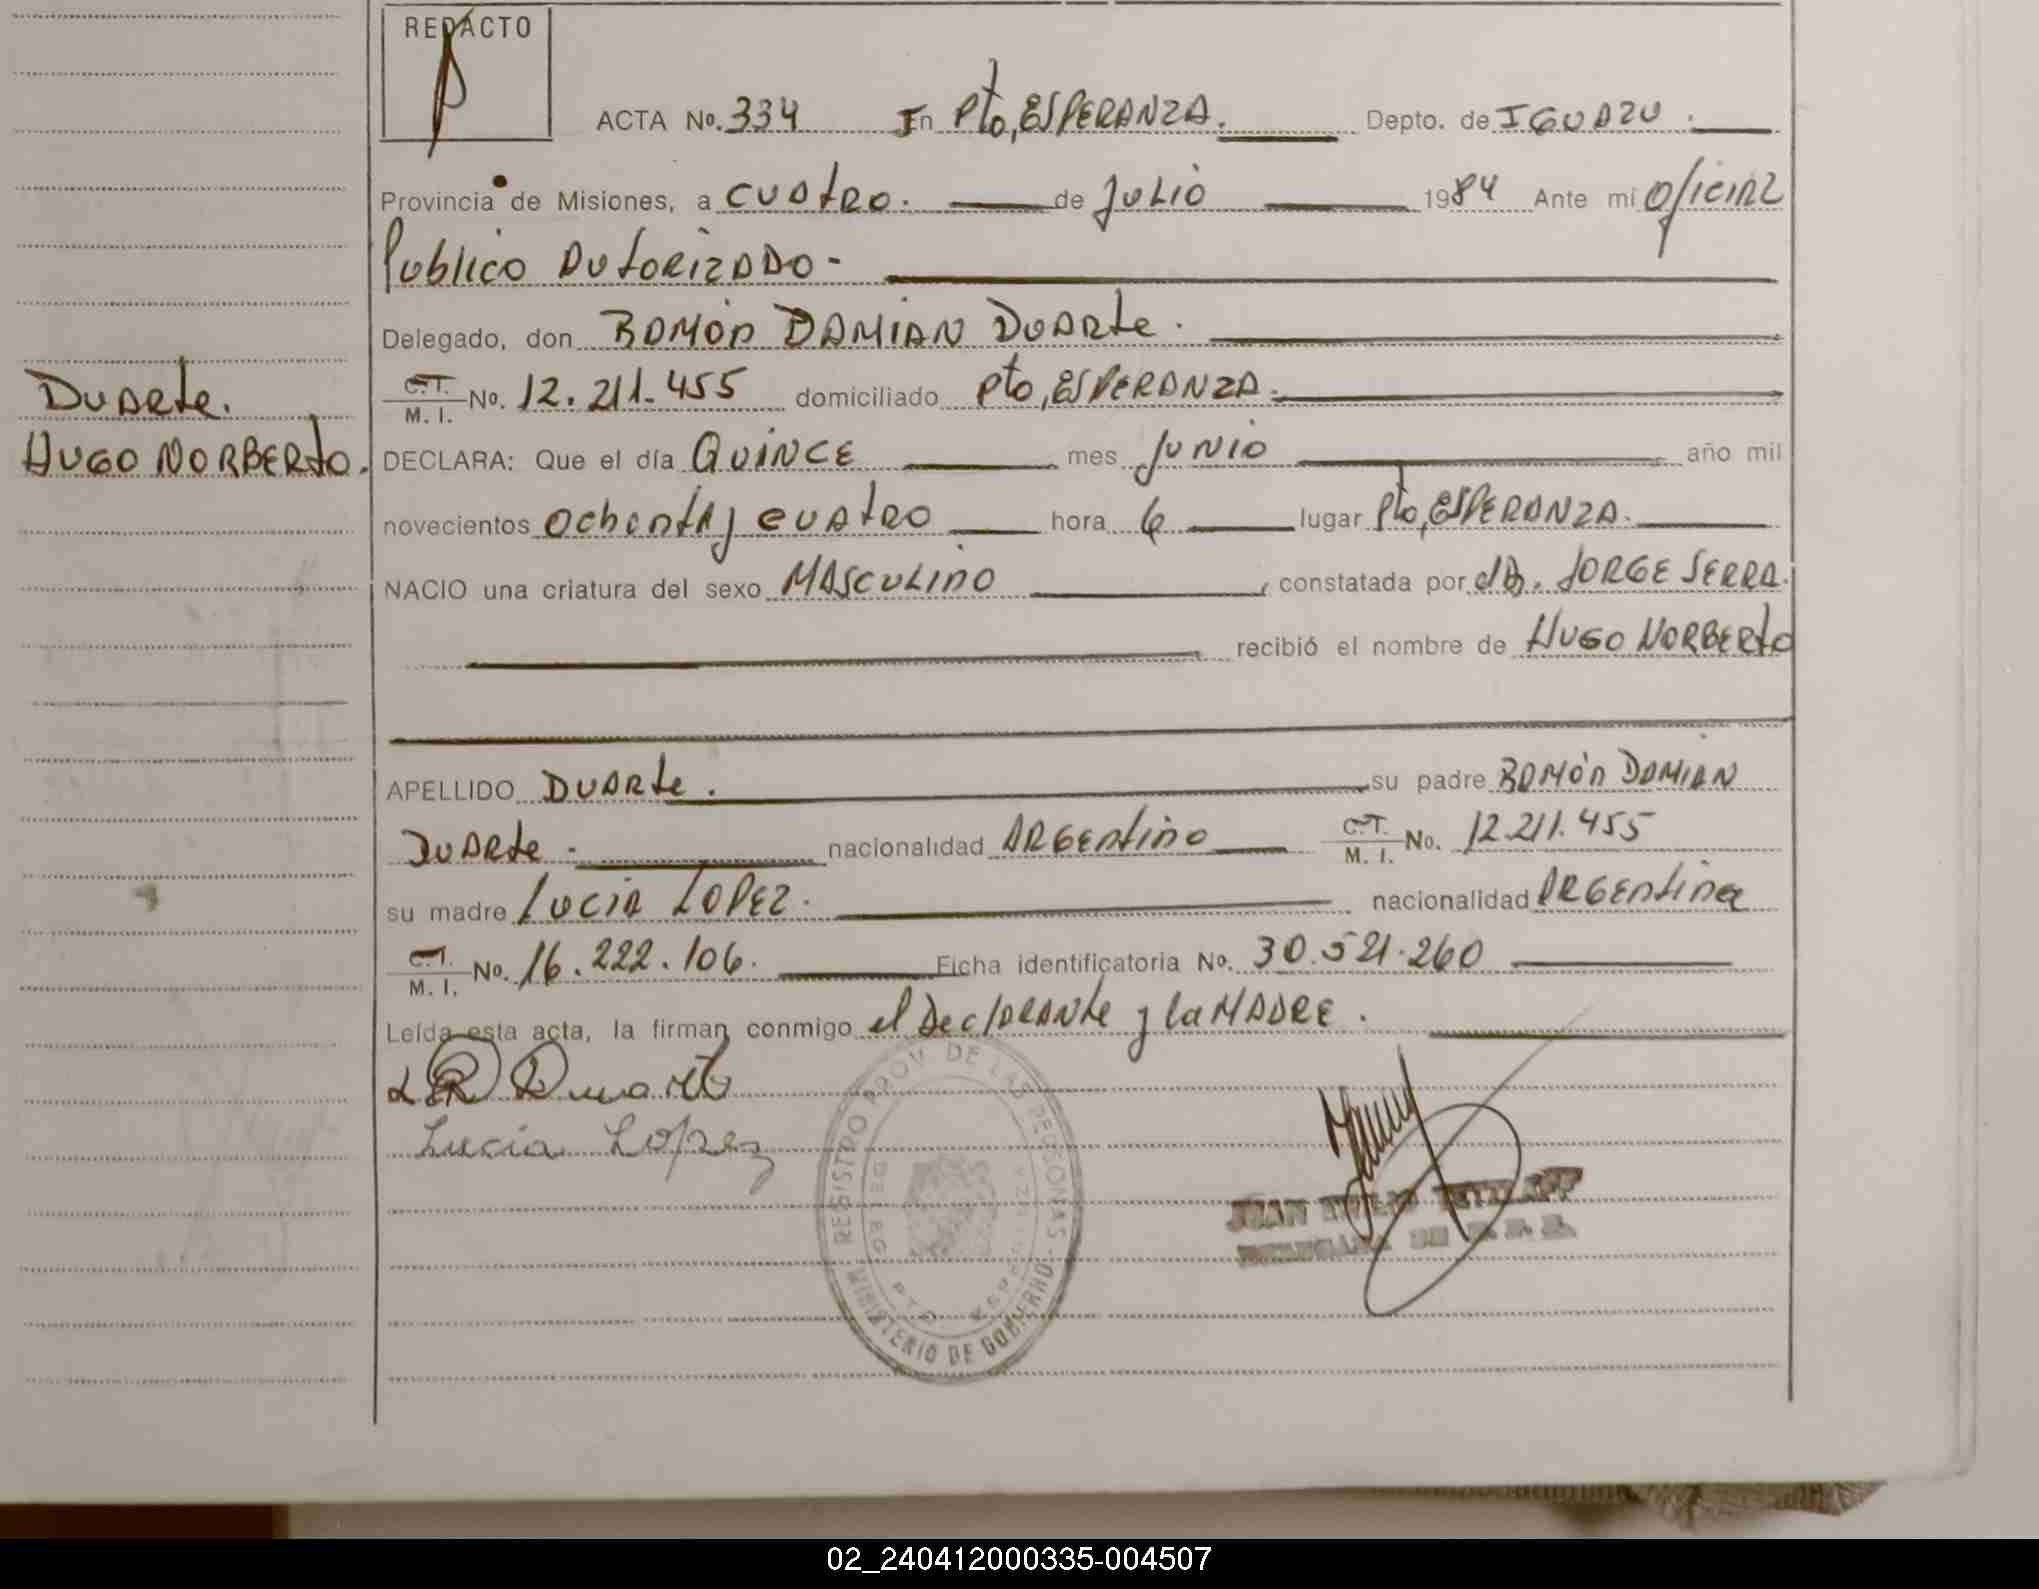 REDACTO
ACTA No. 334 En Pto, ESPERANZA. Depto. de IGUAZU.
Provincia de Misiones, a CUATRO. de JULIO 1984 Ante mi Oficial
Publico AUTORIZADO-
Delegado, don RAMÓN DAMIAN DUARTE.
C.T. / M. I. No. 12.211.455 domiciliado Pto, ESPERANZA.
Duarte.
HUGO NORBERTO.
DECLARA: Que el día QUINCE mes JUNIO año mil
novecientos ochenta y cuatro hora 6 lugar Pto, ESPERANZA.
NACIO una criatura del sexo MASCULINO, constatada por dR. JORGE SERRA.
recibió el nombre de HUGO NORBERTO
APELLIDO DUARTE. su padre RAMÓN DAMIAN
DUARTE - nacionalidad ARGENTINO C.T. / M. I. No. 12.211.455
su madre LUCIA LOPEZ. nacionalidad ARGENTINA
C.T. / M. I. No. 16.222.106. Ficha identificatoria No. 30.521.260
Leída esta acta, la firman conmigo el DeclARANTE y la MADRE.
Duarte
Lucia Lopez
REGISTRO PROV. DE LAS PERSONAS
MINISTERIO DE GOBIERNO
JUAN
02_240412000335-004507